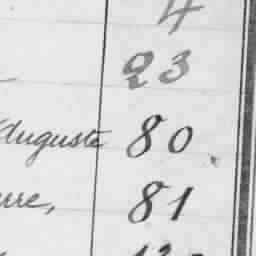 4
23
Auguste 80.
rre, 81